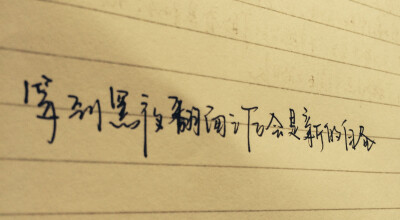 等到黑夜翻面之后会是新的白昼